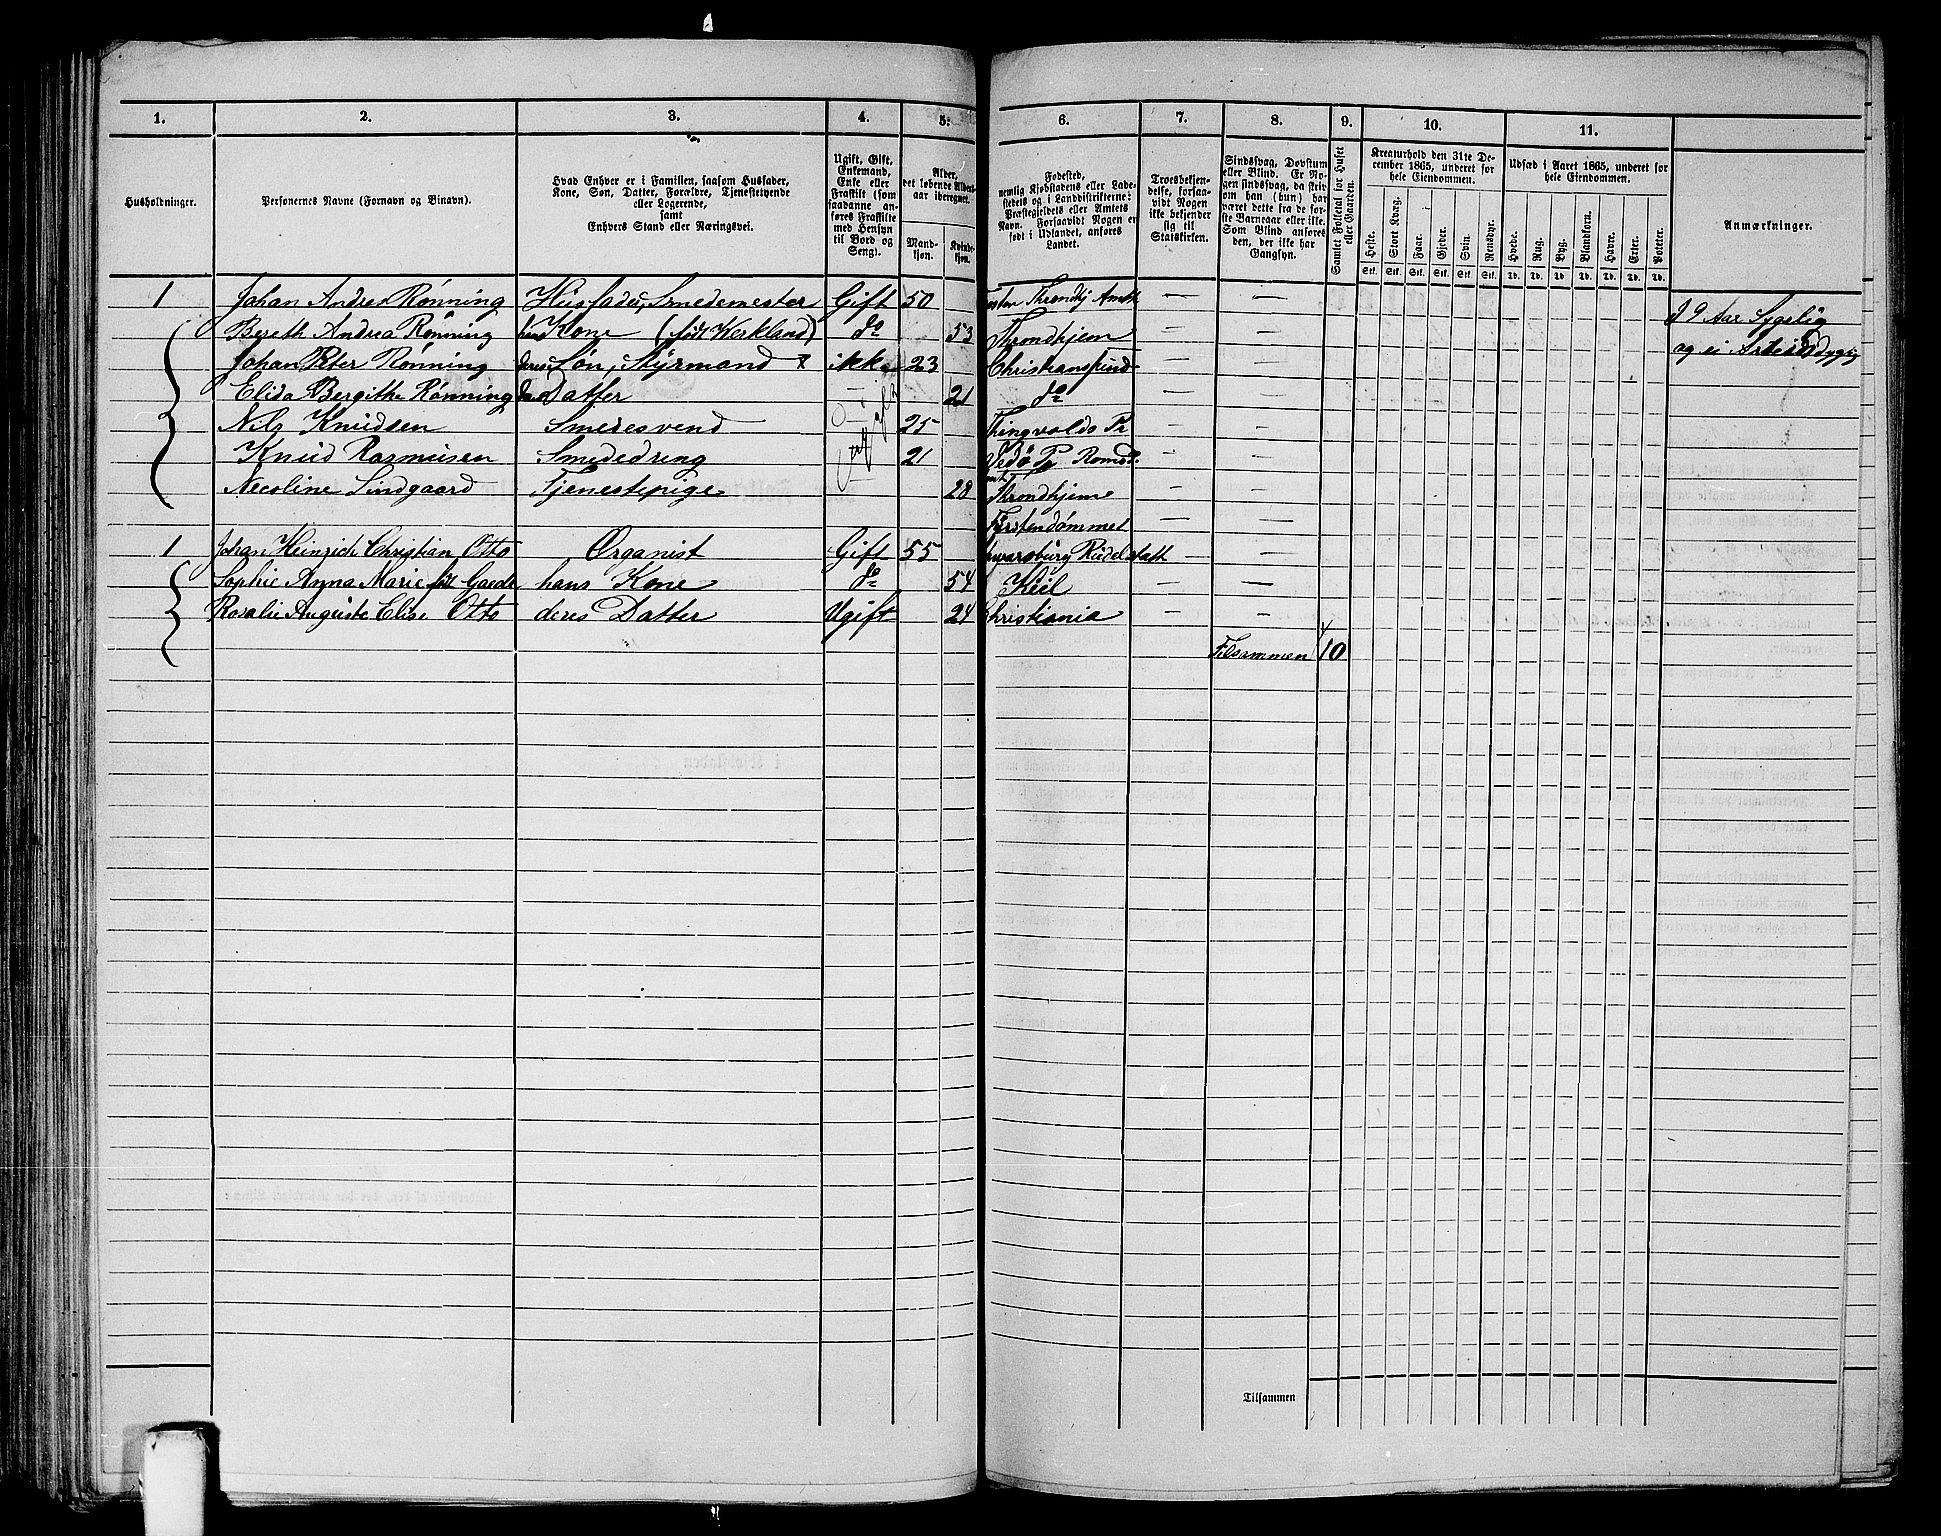 1. 2. 3. 4. 5. 6. 7. 8. 9. 10. 11.
Husholdninger.
Personernes Navne (Fornavn og Binavn).
Hvad Enhver er i Familien, saasom Husfader,
Kone, Søn, Datter, Forældre, Tjenestetyende
eller Logerende,
samt
Enhvers Stand eller Næringsvei.
Ugift, Gift,
Enkemand,
Enke eller
Fraskilt (som
saadanne an-
føres Fraskilte
med Hensyn
til Bord og
Seng).
Alder,
det løbende Alders-
aar iberegnet.
Mand-
kjøn.
Kvinde-
kjøn.
Fødested,
nemlig Kjøbstadens eller Lade-
stedets og i Landdistrikterne:
Præstegjeldets eller Amtets
Navn. Forsaavidt Nogen er
født i Udlandet, anføres
Landet.
Troesbekjen-
delse, forsaa-
vidt Nogen
ikke bekjender
sig til
Statskirken.
Sindssvag, Døvstum
eller Blind. Er No-
gen sindssvag, da skriv
om han (hun) har
været dette fra de før-
ste Barneaar eller ikke.
Som Blind anføres
den, der ikke har
Gangsyn.
Samlet Folketal for Huset
eller Gaarden.
Kreaturhold den 31te De-
cember 1865, underet for
hele Eiendommen.
Heste. Stort Kvæg. Faar. Gjeder. Svin. Rensdyr.
Stk. Stk. Stk. Stk. Stk. Stk.
Udsæd i Aaret 1865, underet for
hele Eiendommen.
Hvede. Rug. Byg. Blandkorn. Havre. Erter. Poteter.
Td. Td. Td. Td. Td. Td. Td.
Anmærkninger.
1 Johan Andrea Rønning Husfader, Smedemester Gift 50 Throndhj Amt — —
Bereth Andrea Rønning hans Kone (født Kerkland) do 53 Throndhjem — — I 9 Aar Sygelig
Johan Peter Rønning deres Søn, Styrmand ikke 23 Christianssund — — og ei Arbeidsdygtig
Elida Bergithe Rønning Datter — 21 do — —
Nils Knudsen Smedesvend 25 Thingvolds Pr — —
Knud Rasmusen Smededreng 21 Vedø Pr Romsd. — —
Necoline Lindgaard Tjenestepige 28 Throndhjem — —
Fürstendømmet — —
1 Johan Heinrich Christian Otto Organist Gift 55 Rudelstatt — —
Sophie Anna Marie fød Gaede hans Kone do 54 Kiel — —
Rosalie Auguste Elise Otto deres Datter Ugift 24 Christiania — —
Tilsammen 10
Tilsammen